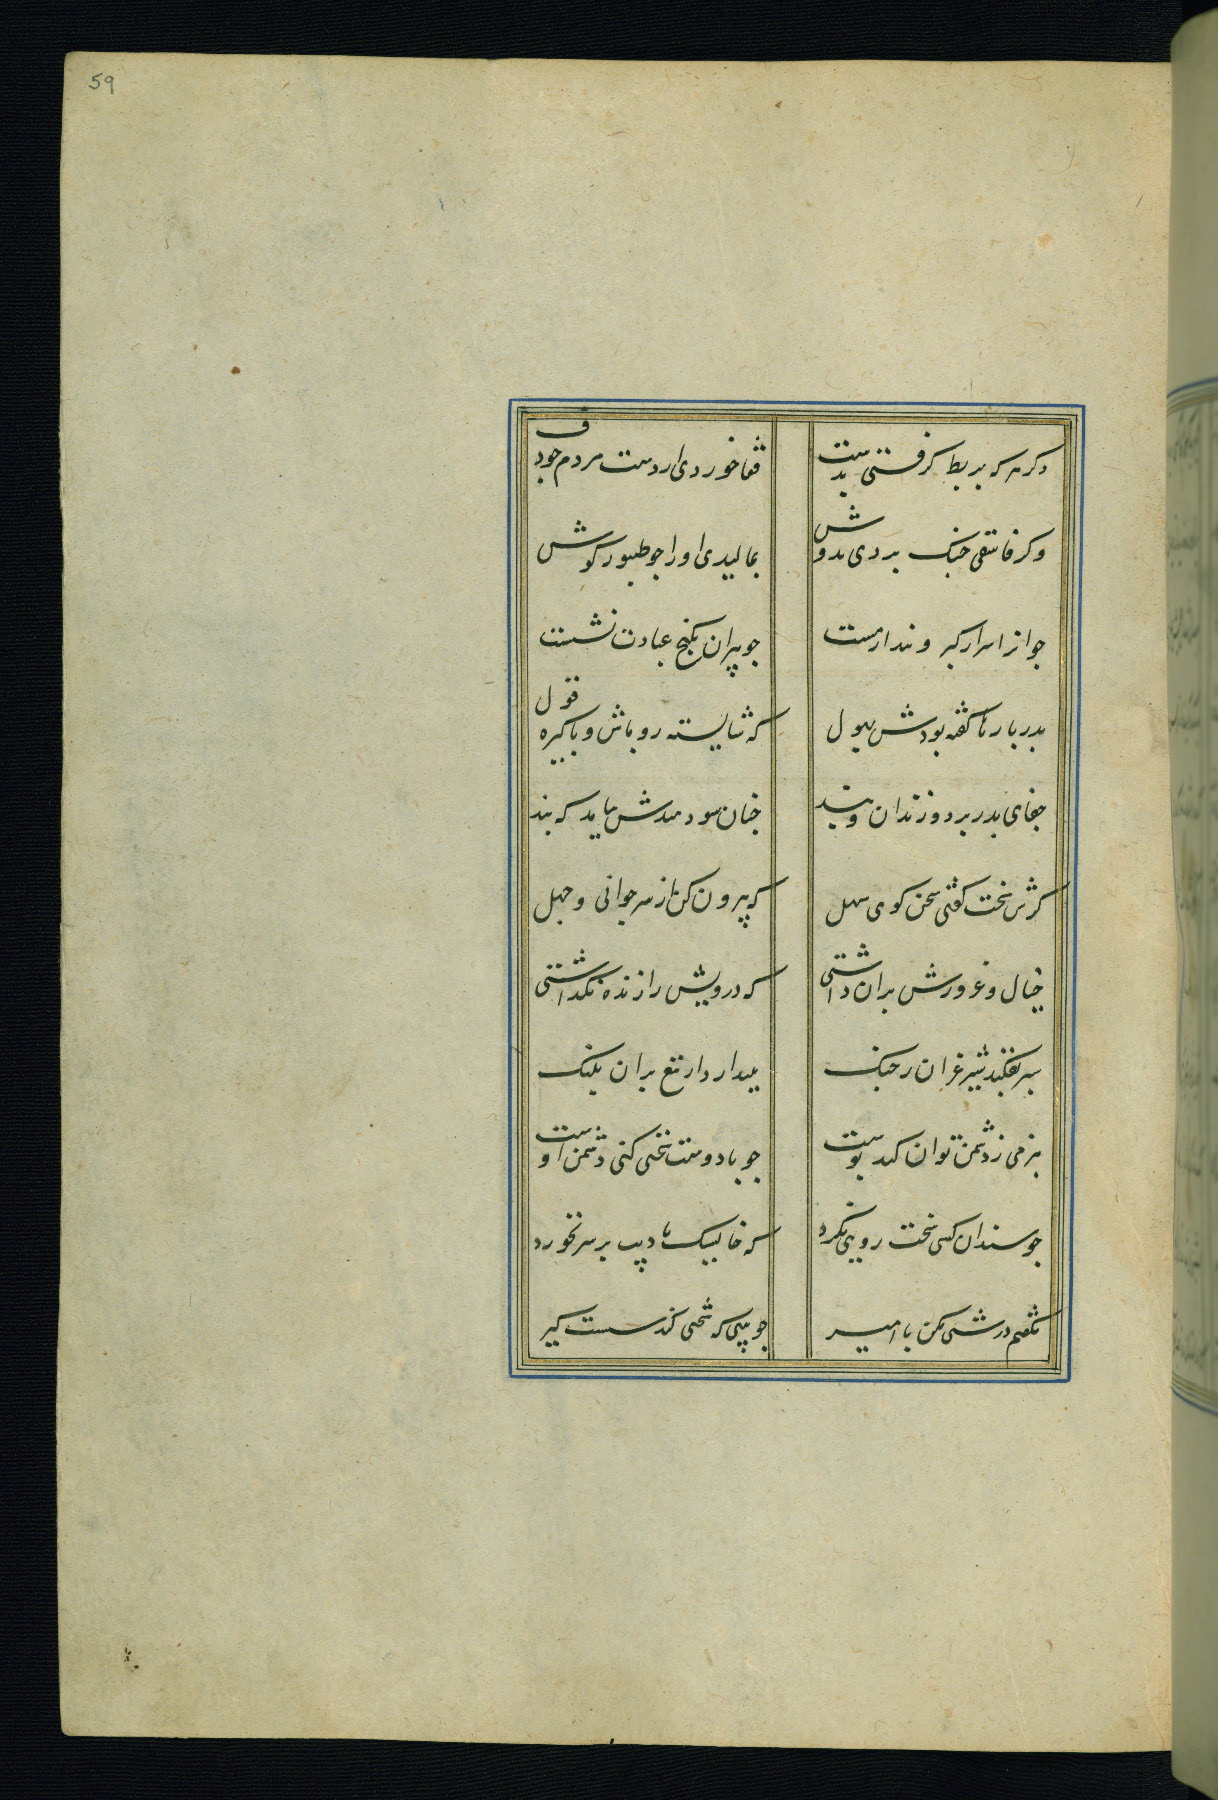 59
دکر هر که بربط کرفتی بدست قفا خوردی از دست مردم جو دف
وکر فاسقی جنک بردی بدوش بمالیدی او را جو طنبور کوش
جوان از سر کبر و پندار مست جو پیران بکنج عبادت نشست
پدر بارها کفته بودش بهول که شایسته رو باش و پاکیزه قول
جفای پدر برد و زندان و بند جنان سودمندش نیامد که پند
کرش سخت کفتی سخن کوی سهل که بیرون کن از سر جوانی و جهل
خیال و غرورش بران داشتی که درویش را زنده نکذاشتی
سپر نفکند شیر غران ز جنک از تیغ بران پلنک
بنرمی ز دشمن توان کند پوست جو با دوست سختی کنی دشمن اوست
جو سندان کسی سخت رویی نکرد که خایسک تادیب بر سر نخورد
بکفتن درشتی مکن با امیر جو بینی که سختی کند سست کیر